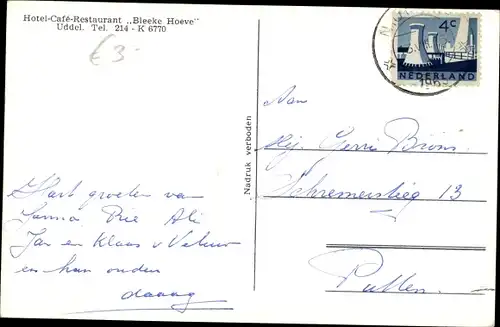 Hotel-Café-Restaurant „Bleeke Hoeve"
Uddel. Tel. 214 - K 6770
€ 3-
4c
NEDERLAND
Nadruk verboden
Aan
Mej. Gerrie
13
Putten.
Hart groeten van
Janna Rie Ali
Jan en Klaas v
en hun ouders
daaag